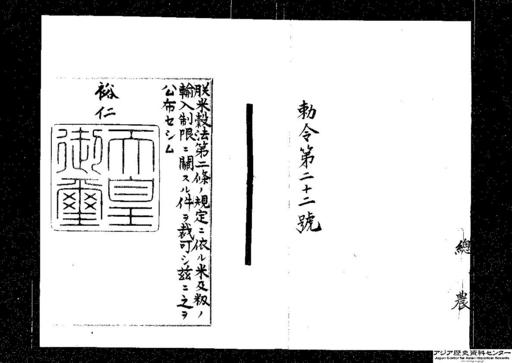 勅令第二十二號
朕米穀法第二條ノ規定ニ依ル米及籾ノ
輸入制限ニ關スル件ヲ裁可シ茲ニ之ヲ
公布セシム
裕仁
天皇
御璽
總
農
アジア歴史資料センター
Japan Center for Asian Historical Records